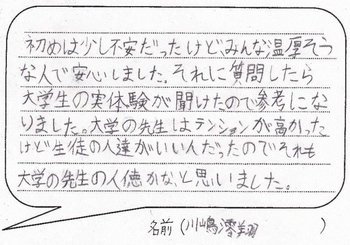 初めは少し不安だったけどみんな温厚そう
な人で安心しました。それに質問したら
大学生の実体験が聞けたので参考にな
りました。大学の先生はテンションが高かった
けど生徒の人達がいいんだったのでそれも
大学の先生の人徳かな、と思いました。
名前(川嶋澪翔)